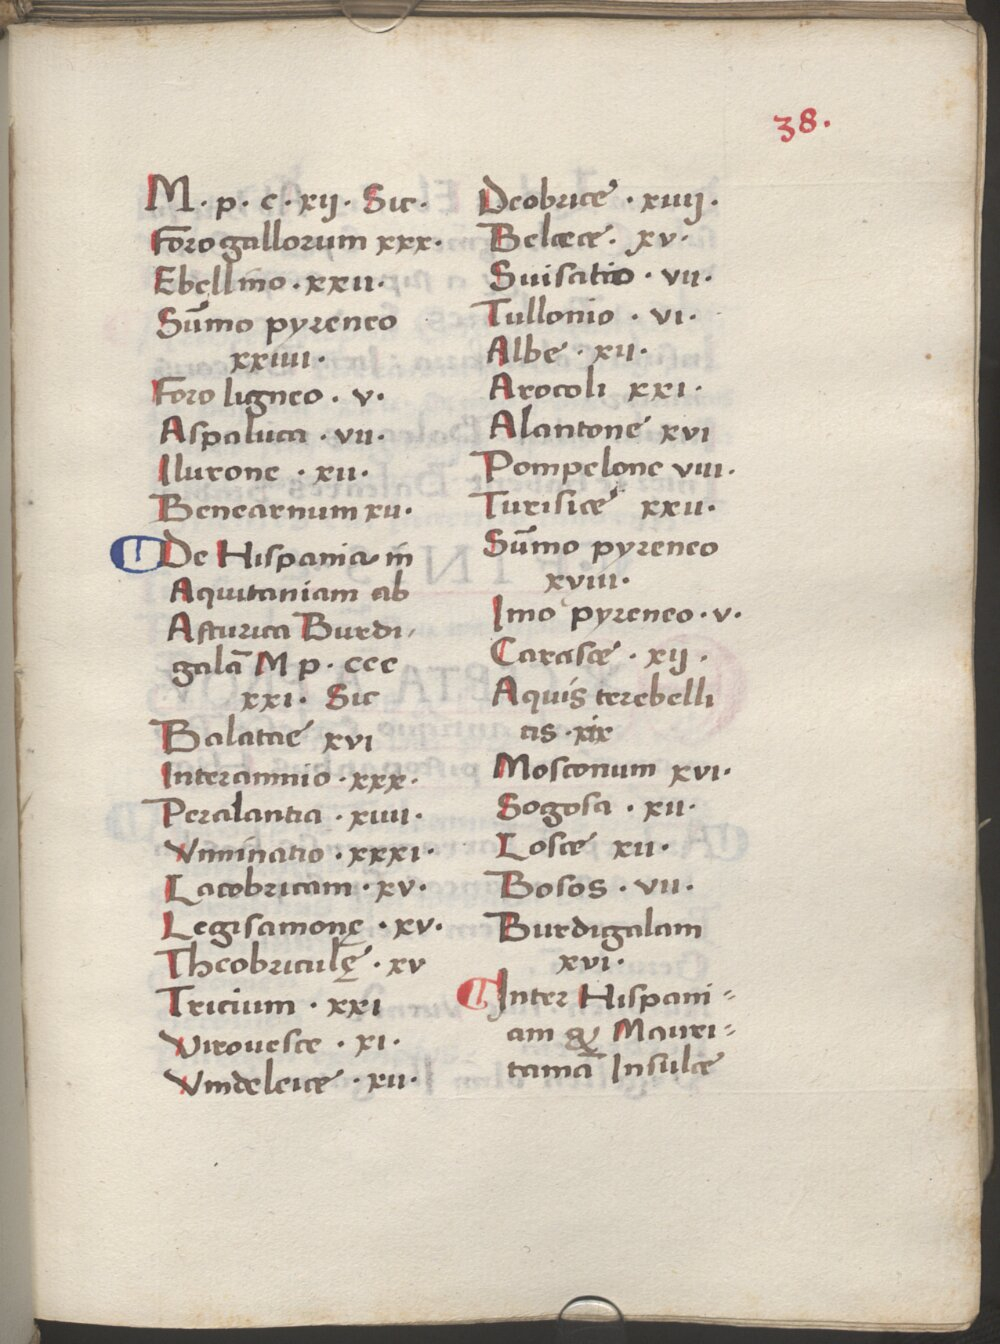 38.
M. p. c. xij. Sic.
Foro gallorum xxx.
Ebellino. xxii.
Sūmo pyreneo
xxiiii.
Foro ligneo. v.
Aspaluca. vii.
Ilurone. xii.
Benearnum xii.
De Hispania in
Aquitaniam ab
Asturica Burdi,
galā M p. ccc
xxi. Sic
Balatæ xvi
Interamnio. xxx.
Peralantia. xiiii.
Viminatio. xxxi.
Lacobricam. xv.
Legisamonę. xv.
Theobriculę. xv
Tricium. xxi
Virouesce. xi.
Vindeleiæ. xii.
Deobricæ. xiiij.
Belecæ. xv.
Suisatio. vii.
Tullonio. vi.
Albæ. xii.
Arocoli xxi.
Alantonæ xvi
Pompelone viii.
Turisicæ xxii.
Sūmo pyreneo
xviii.
Imo pyreneo. v.
Carasæ. xij.
Aquis terebelli
tis. xix
Mosconum xvi.
Sogosa. xii.
Losæ xii.
Bosos. vii.
Burdigalam
xvi.
Inter Hispani=
am & Mauri=
taniā Insulæ